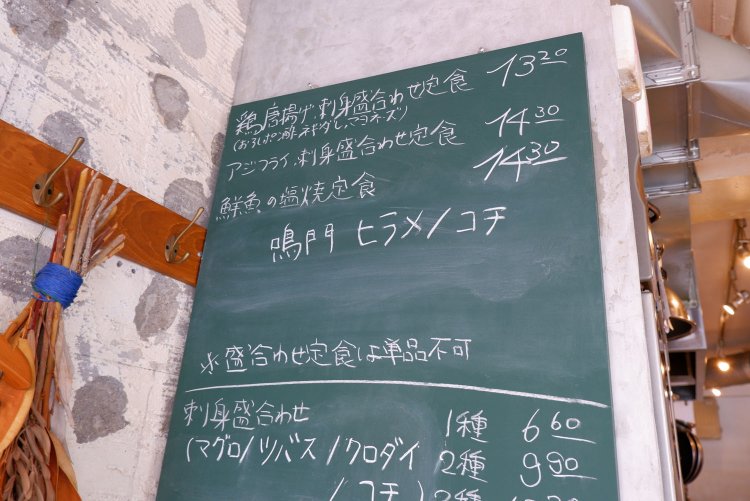 鶏唐揚げ、刺身盛合わせ定食 1320
(おろしポン酢、ネギダレ、マヨネーズ)
アジフライ、刺身盛合わせ定食 1430
鮮魚の塩焼定食 1430
鳴門 ヒラメ/コチ
※盛合わせ定食は単品不可
刺身盛合わせ 1種 660
(マグロ/ツバス/クロダイ 2種 990
/コチ) 3種